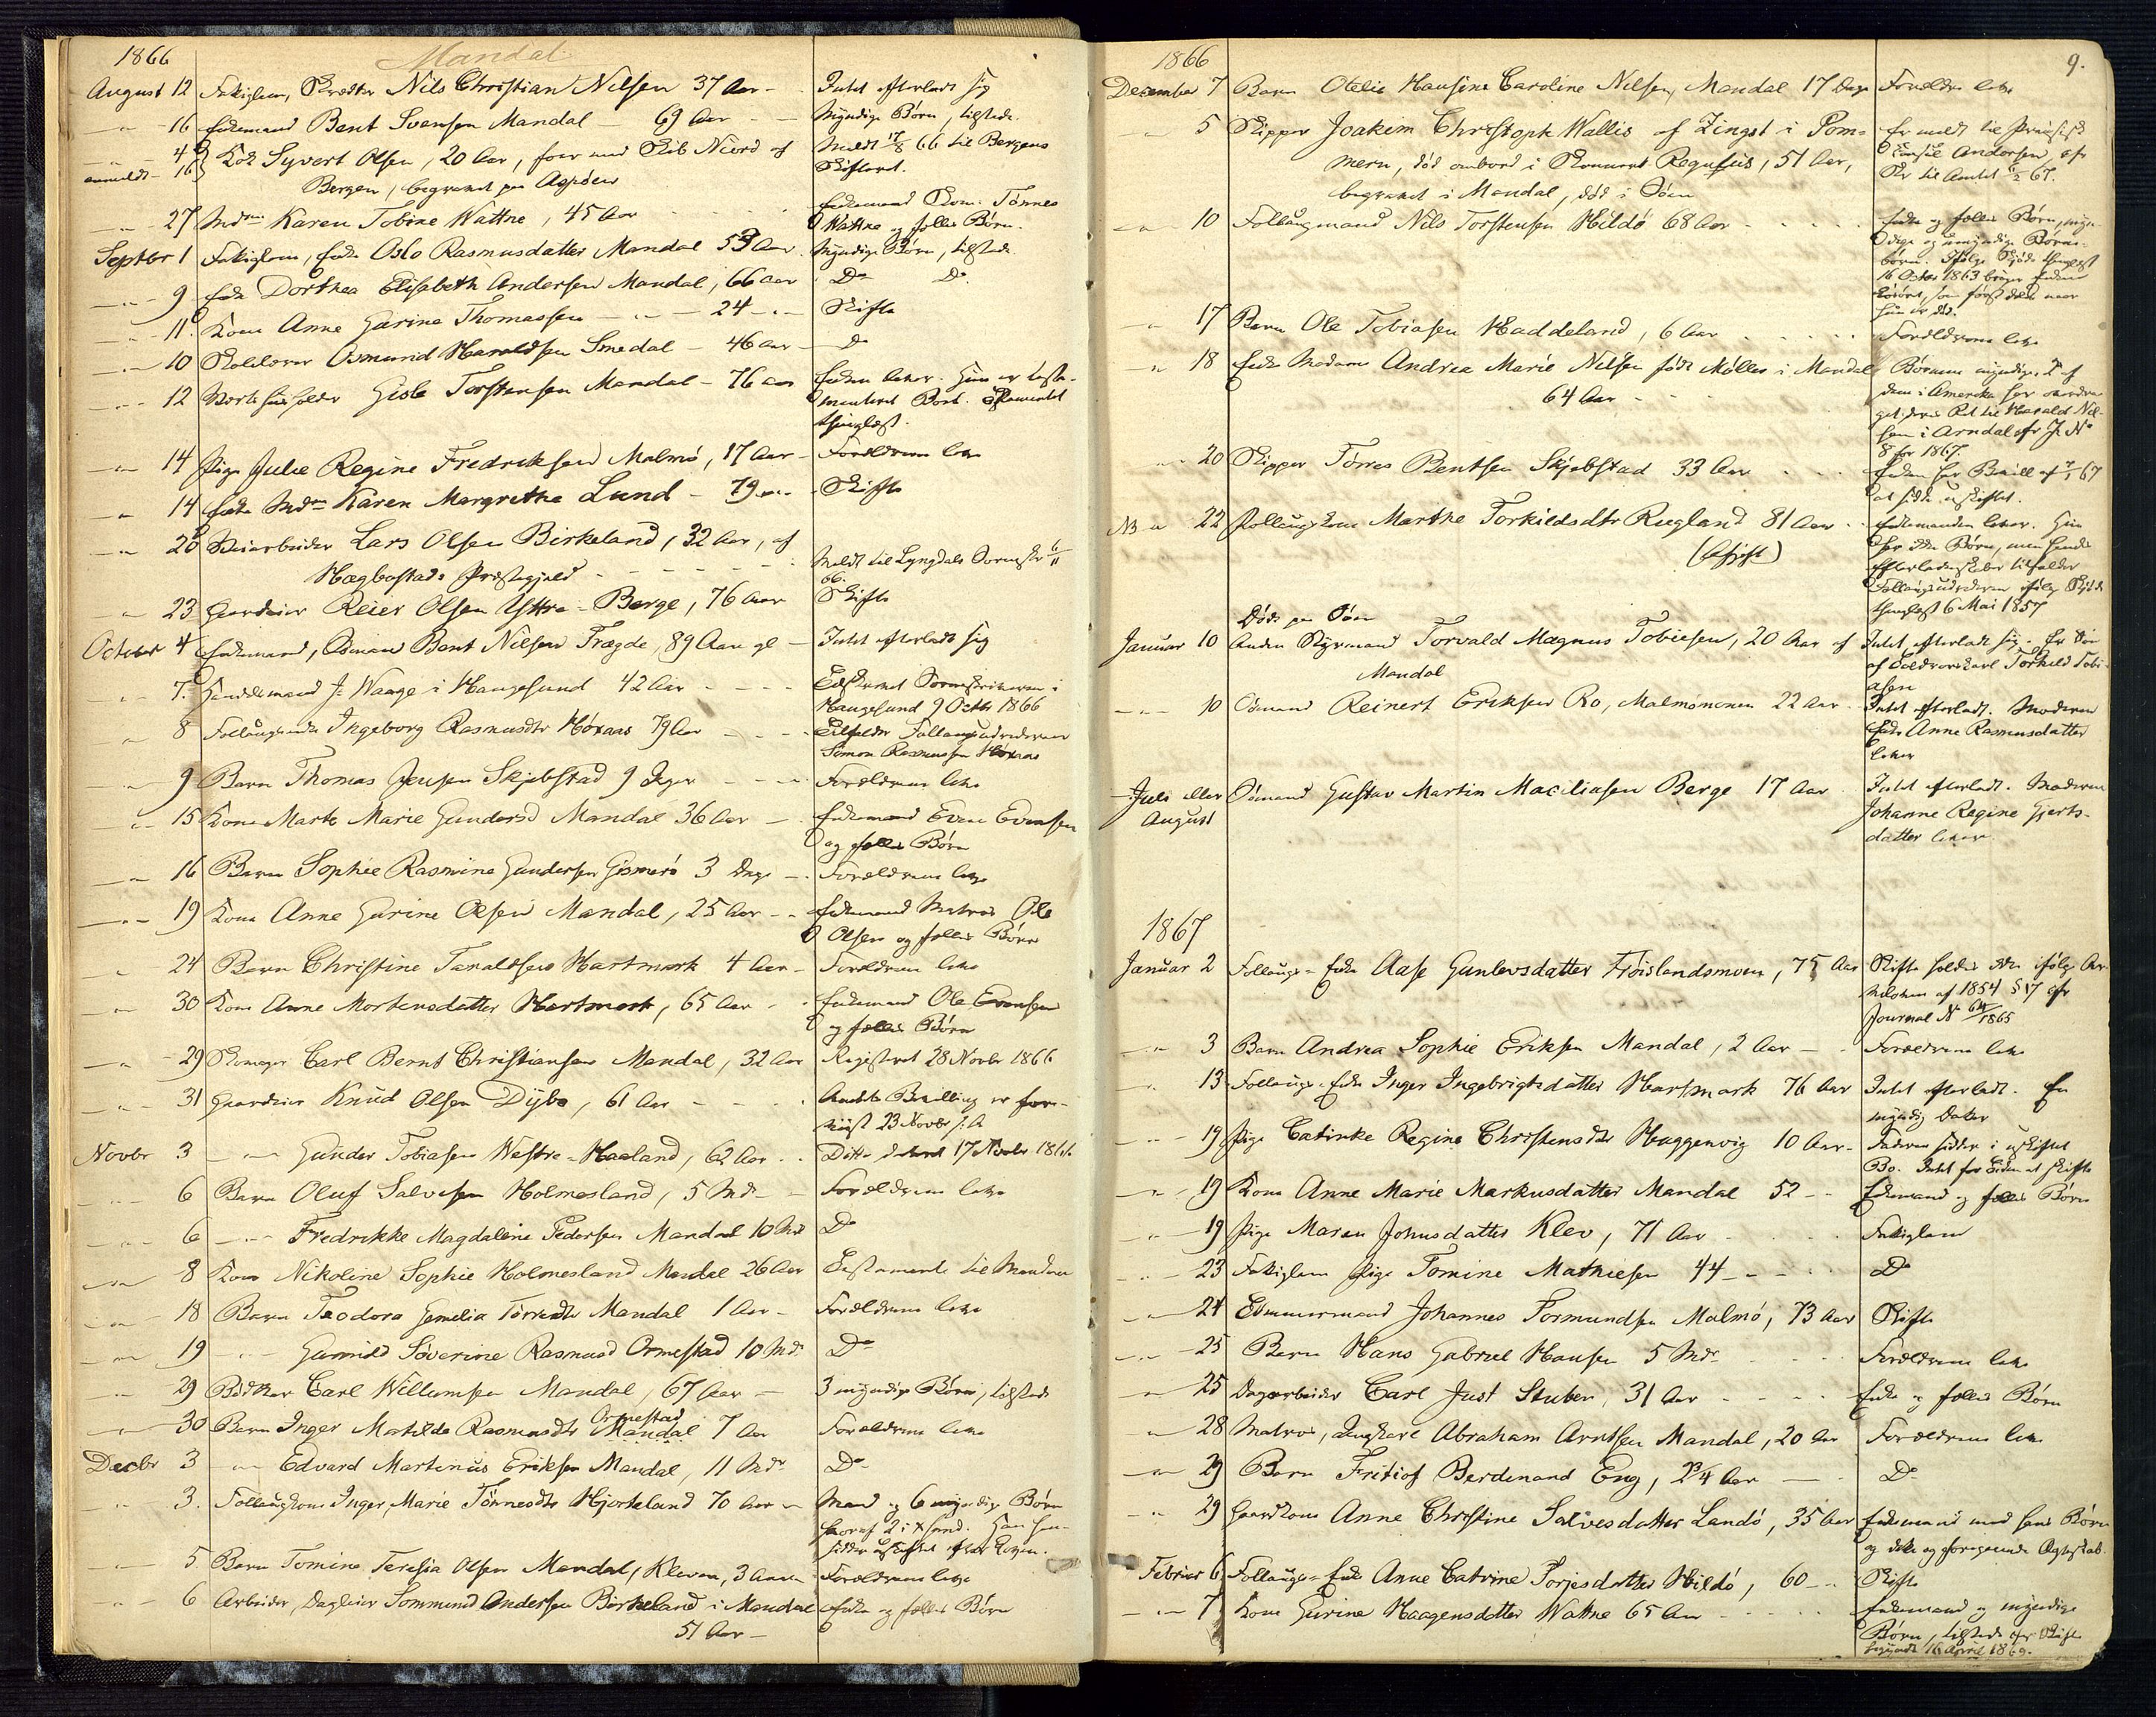 1866
Mandal
August 12 Fatiglem, Skredder Nils Christian Nilsen 37 Aar - Intet efterladt sig
" 16 Enkemand Bent Svensen Mandal - 69 Aar - Myndige Børn, tilstede
" 4 Kok Syvert Olsen, 20 Aar, foer med Skib Niord af Meldt 17/8 66 til Bergens
anmeldt 16 Bergen, begravet paa Aspøen Skifteret.
" 27 Mdm Karen Tobine Wattne, 45 Aar Enkemand Skom. Tønnes
Wattne og fælles Børn.
Septbr 1 Fatiglem, Enke Oslo Rasmusdatter Mandal 53 Aar Myndige Børn, tilstede
" 9 Enke Dorthea Elisabeth Andersen Mandal, 66 Aar Do Do
" 11. Kone Anne Gurine Thomassen - " - 24 - " - Skifte
" 10 Skolelærer Osmund Haraldsen Smedal - 46 Aar - Do
" 12 Gisle Torstensen Mandal - 76 Aar Enken lever. Hun er testa-
menteret Boet. Testamentet
thinglæst.
" 14 Pige Julie Regine Fredriksen Malmø, 17 Aar - Forældrene leve
" 14 Enke Mdm Karen Margrethe Lund - 79 " - Skifte
" 20 Veiarbeider Lars Olsen Birkeland, 32 Aar, af
Hægbostads Præstegjeld - Meldt til Lyngdals Sorenskr 6/11
66.
" 23 Gaardeier Reier Olsen Yttre-Berge, 76 Aar Skifte
October 4 Enkemand, Sømand Bent Nilsen Trægde, 89 Aar gl - Intet efterladt sig
" 7. Handelsmand J. Waage i Haugesund 42 Aar Tilskrevet Sorenskriveren i
Haugesund 9 Octbr 1866
" 8 Follaugsenke Ingeborg Rasmusdtr Høxaas 79 Aar Tilfalder Follaugsudrederen
Simon Rasmussen Høxaas
" 9 Barn Thomas Jensen Skjebstad 9 Dage Forældrene leve
" 15 Kone Marte Marie Gundersd Mandal 36 Aar - Enkemand Even Evensen
og fælles Børn
" 16 Barn Sophie Rasmine Gundersen Gismerø 3 Dage - Forældrene leve
" 19 Kone Anne Gurine Olsen Mandal, 25 Aar - Enkemand Matros Ole
Olsen og fælles Børn
" 24 Barn Christine Taraldsen Hartmark 4 Aar - Forældrene leve
" 30 Kone Anne Mortensdatter Hartmark, 65 Aar - Enkemand Ole Evensen
og fælles Børn
" 29 Skomager Carl Bernt Christiansen Mandal, 32 Aar Registeret 28 Novbr 1866
" 31 Gaardeier Knud Olsen Dybo, 61 Aar - Bevilling er fore-
viist 23 Novbr s. A
Novbr 3 " Gunder Tobiasen Westre-Haaland, 62 Aar Ditto dateret 17 Novbr 1866
" 6 Barn Oluf Salvesen Holmesland, 5 Mdr - Forældrene leve
" 6 " Fredrikke Magdaline Pedersen Mandal 10 Mdr Do
" 8 Kone Nikoline Sophie Holmesland Mandal 26 Aar Testamente til Manden
" 18 Barn Teodora Gemelia Tørresdtr Mandal 1 Aar - Forældrene leve
" 19 " Gunnild Søverine Rasmusd Ormestad 10 Mdr Do
" 29 Bødker Carl Willumsen Mandal, 67 Aar - 3 myndige Børn, tilstede
" 30 Barn Inger Matilde Rasmusdtr Mandal Ormestad 7 Aar Forældrene leve
Decbr 3 " Edvard Martinius Eriksen Mandal, 11 Mdr Do
" 3. Follaugskone Inger Marie Tønnesdtr Hjorteland 70 Aar - Mand og 6 myndige Børn
hvoraf 2 i Xsand. Han hen-
sidder uskiftet efter Loven.
" 5 Barn Tomine Teresia Olsen Mandal, Kleven, 3 Aar Forældrene leve
" 6 Arbeider, Dagleier Tommund Andersen Birkeland i Mandal Enke og fælles Børn
51 Aar -
1866
9.
December 7 Barn Otelie Hansine Caroline Nilsen, Mandal 17 Dage Forældre leve
" 5 Skipper Joakim Christoph Wallis af Zingst i Pom- Er meldt til Preussisk
mern, død ombord i Skonnert Regulus, 51 Aar, Konsul Andorsen, efr
begravet i Mandal, død i Søen Skr til Amtet 67.
" 10 Follaugmand Nils Torstensen Hildø 68 Aar Enke og fælles Børn, myn-
dige og umyndige Børne-
børn. Ifølge Skjøde thinglæst
16 Octbr 1863 bruger Enken
Løsøret, som først deles naar
hun er død.
" 17 Barn Ole Tobiasen Haddeland, 6 Aar Forældrene leve
" 18 Enke Madame Andrea Marie Nilsen født Møller i Mandal Børnene myndige, 2 af
64 Aar dem i Amerika har overdra-
get deres Ret til Harald Nil-
sen i Arndal efr J. No
8 for 1867.
" 20 Skipper Tørres Bentsen Skjebstad 33 Aar Enken har Bevill af 67
at sidde uskiftet.
NB " 22 Follaugskone Marthe Torkildsdtr Rugland 81 Aar Enkemanden lever. Hun
(Afsigt) har ikke Børn, men hendes
Efterladenskaber tilfalder
Follaugsudrederen ifølge Skjøde
thinglæst 6 Mai 1857
Døde paa Søen
Januar 10 Anden Styrmand Torvald Magnus Tobiesen, 20 Aar af Intet efterladt sig. Er Søn
Mandal af Torkild Tobi-
asen
" 10 Sømand Reinert Eriksen Ro, Malmømonen 22 Aar Intet efterladt. Moderen
Enke Anne Rasmusdatter
lever
Juli eller Sømand Gustav Martin Maciliasen Berge 17 Aar Intet efterladt. Moderen
August Johanne Regine Gjerts-
datter lever
1867
Januar 2 Follaugs-Enke Aase Gunlevsdatter Frøislandsmoen, 75 Aar Skifte holdes ikke ifølge Arv
af 1854 § 17 efr
Journal No 64/1865
" 3 Barn Andrea Sophie Eriksen Mandal, 2 Aar - Forældrene leve
" 13 Follaugs-Enke Inger Ingebrigtsdatter Hartmark 76 Aar Intet efterladt. En
myndig Datter
" 19 Pige Catinke Regine Christensdtr Haggenvig 10 Aar - Faderen sidder i uskiftet
Bo. Intet for Tiden at skifte
" 19 Kone Anne Marie Markusdatter Mandal 52 - Enkemand og fælles Børn
" 19 Pige Maren Johnsdatter Klev, 71 Aar Fatiglem
" 23 Fatiglem Pige Tomine Mathiesen 44 - Do
" 24 Tømmermand Johannes Tormundsen Malmø, 73 Aar Skifte
" 25 Barn Hans Gabriel Hansen 5 Mdr Forældrene leve
" 25 Dagarbeider Carl Just Stuber, 31 Aar Enke og fælles Børn
" 28 Matros, Ungkarl Abraham Arntsen Mandal, 20 Aar Forældrene leve
" 29 Barn Fritiof Berdinand Eng, 2 3/4 Aar - Do
" 29 Gaardkone Anne Christine Salvesdatter Landø, 35 Aar Enkemand med hans Børn
og foregaaende Ægteskab.
Februar 6 Follaugs-Enke Anne Catrine Torjesdatter Hildø, 60 - Skifte
" 7 Kone Gurine Haagensdatter Wattne 65 Aar Enkemand og myndige
Børn, tilstede efr Skifte
begyndt 16 April 1869.